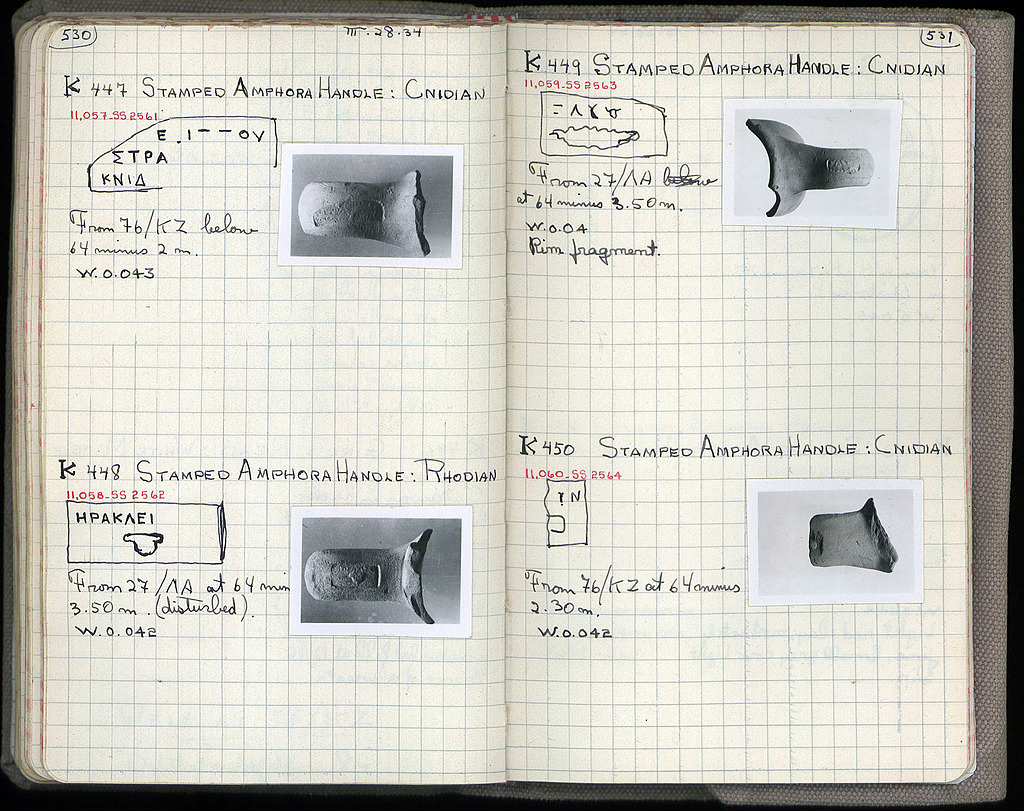 530
III.28.34
K 447 STAMPED AMPHORA HANDLE: CNIDIAN
11,057-SS 2561
Ε . Ι – – ΟΥ
ΣΤΡΑ
ΚΝΙΔ
From 76/ΚΖ below
64 minus 2 m.
W. 0.043
K 448 STAMPED AMPHORA HANDLE: RHODIAN
11,058-SS 2562
ΗΡΑΚΛΕΙ
From 27/ΛΑ at 64 min
3.50 m. (disturbed).
W. 0.042
531
K 449 STAMPED AMPHORA HANDLE: CNIDIAN
11,059-SS 2563
From 27/ΛΑ below
at 64 minus 3.50 m.
W. 0.04
Rim fragment.
K 450 STAMPED AMPHORA HANDLE: CNIDIAN
11,060-SS 2564
Υ Ν
From 76/ΚΖ at 64 minus
2.30 m.
W. 0.042